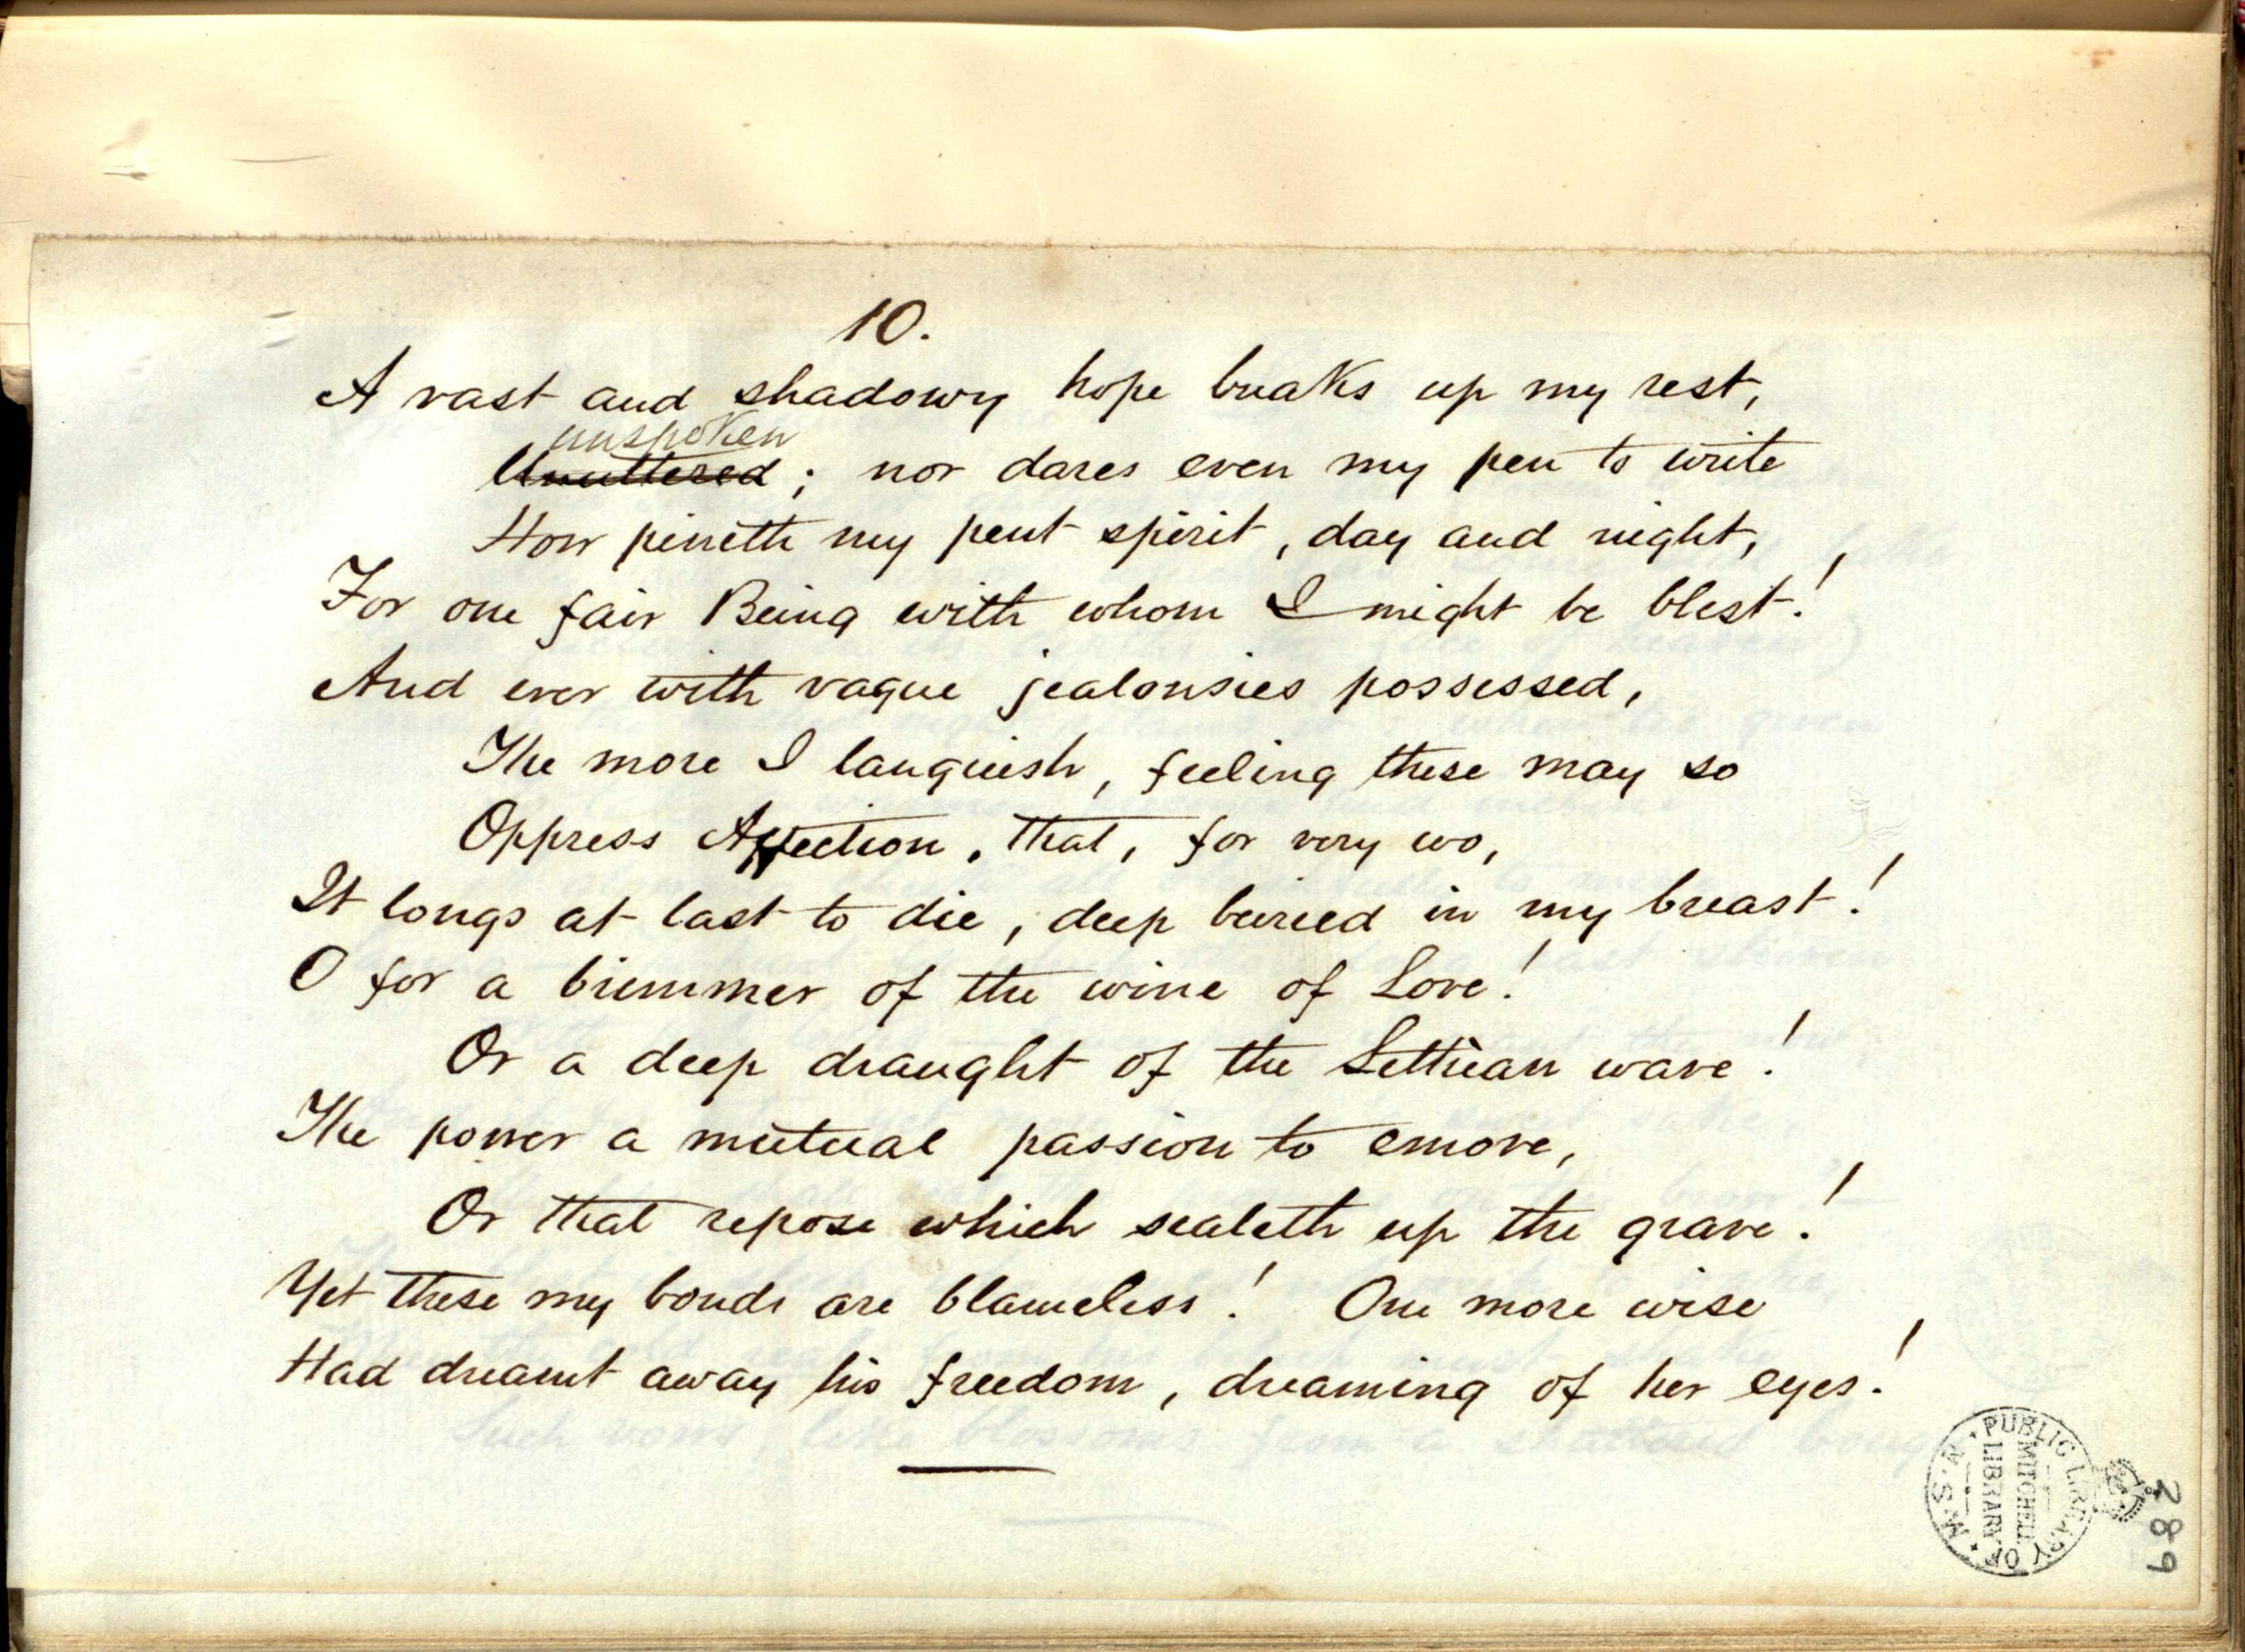 10.
A vast and shadowy hope breaks up my rest,
unspoken
Unuttered; nor dares even my pen to write
How pineth my pent spirit, day and night,
For one fair Being with whom I might be blest!
And ever with vague jealousies possessed,
The more I languish, feeling these may so
Oppress Affection, that, for very wo,
It longs at last to die, deep buried in my breast!
O for a brimmer of the wine of Love!
Or a deep draught of the Lethèan wave!
The power a mutual passion to emove,
Or that repose which sealeth up the grave!
Yet these my bonds are blameless! One more wise
Had dreamt away his freedom, dreaming of her eyes!
PUBLIC LIBRARY OF N.S.W.
MITCHELL
LIBRARY
289